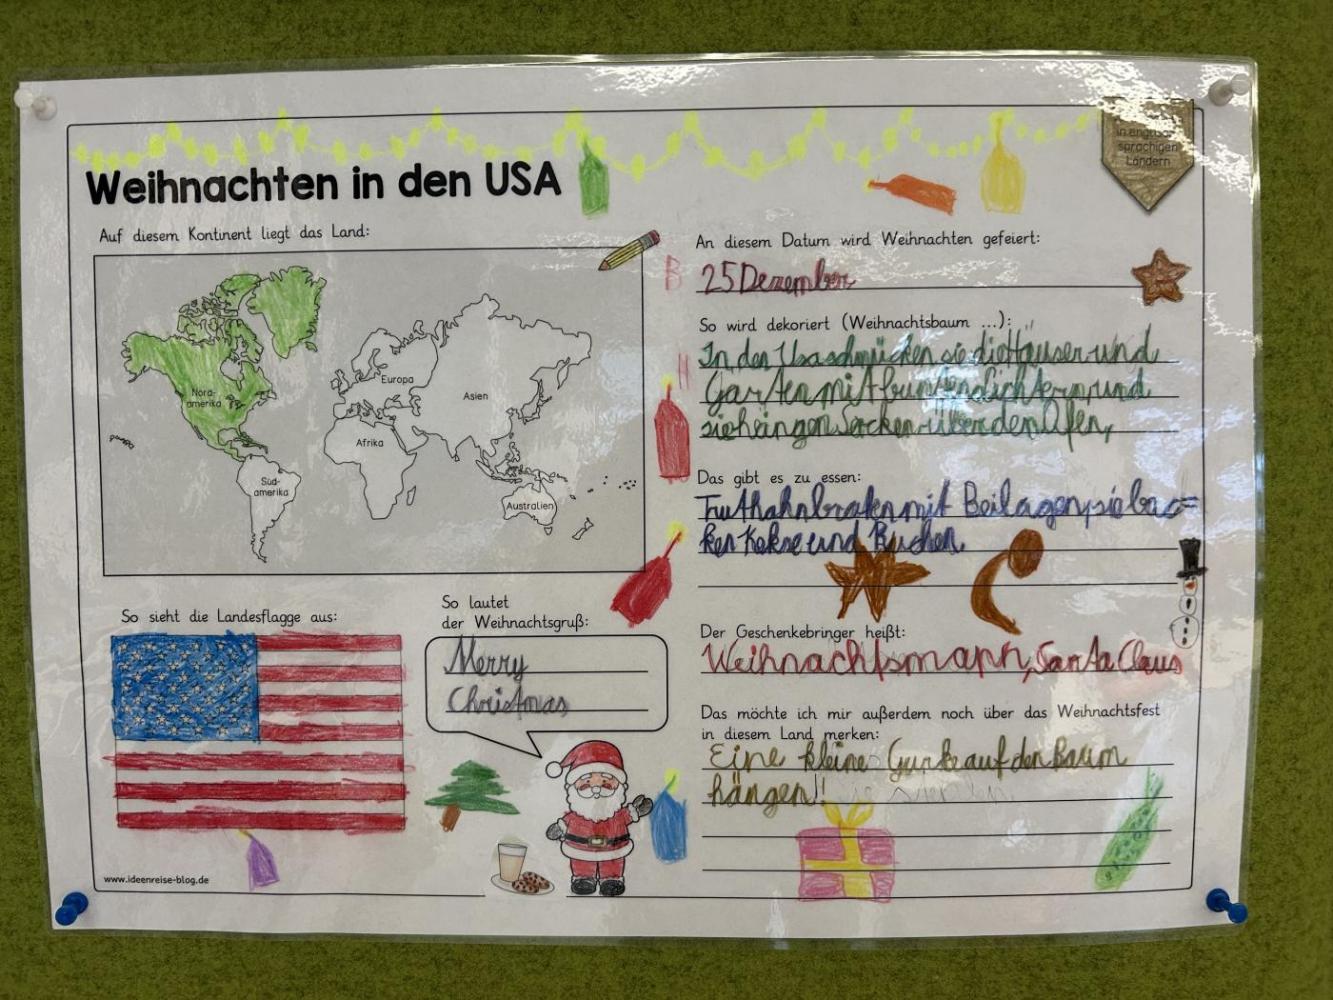 Weihnachten in den USA
in englisch-
sprachigen
Ländern
Auf diesem Kontinent liegt das Land:
Nord-
amerika
Europa
Asien
Afrika
Süd-
amerika
Australien
So sieht die Landesflagge aus:
So lautet
der Weihnachtsgruß:
Merry
Christmas
www.ideenreise-blog.de
An diesem Datum wird Weihnachten gefeiert:
25 Dezember
So wird dekoriert (Weihnachtsbaum ...):
In den Usa schmücken sie die Häuser und
Garten mit bunten Lichtern und
sie hängen Socken über den Ofen,
Das gibt es zu essen:
Truthahnbraten mit Beilagen, sie bac=
ken Kekse und Kuchen
Der Geschenkebringer heißt:
Weihnachtsmann, Santa Claus
Das möchte ich mir außerdem noch über das Weihnachtsfest
in diesem Land merken:
Eine kleine Gurke auf den Baum
hängen!